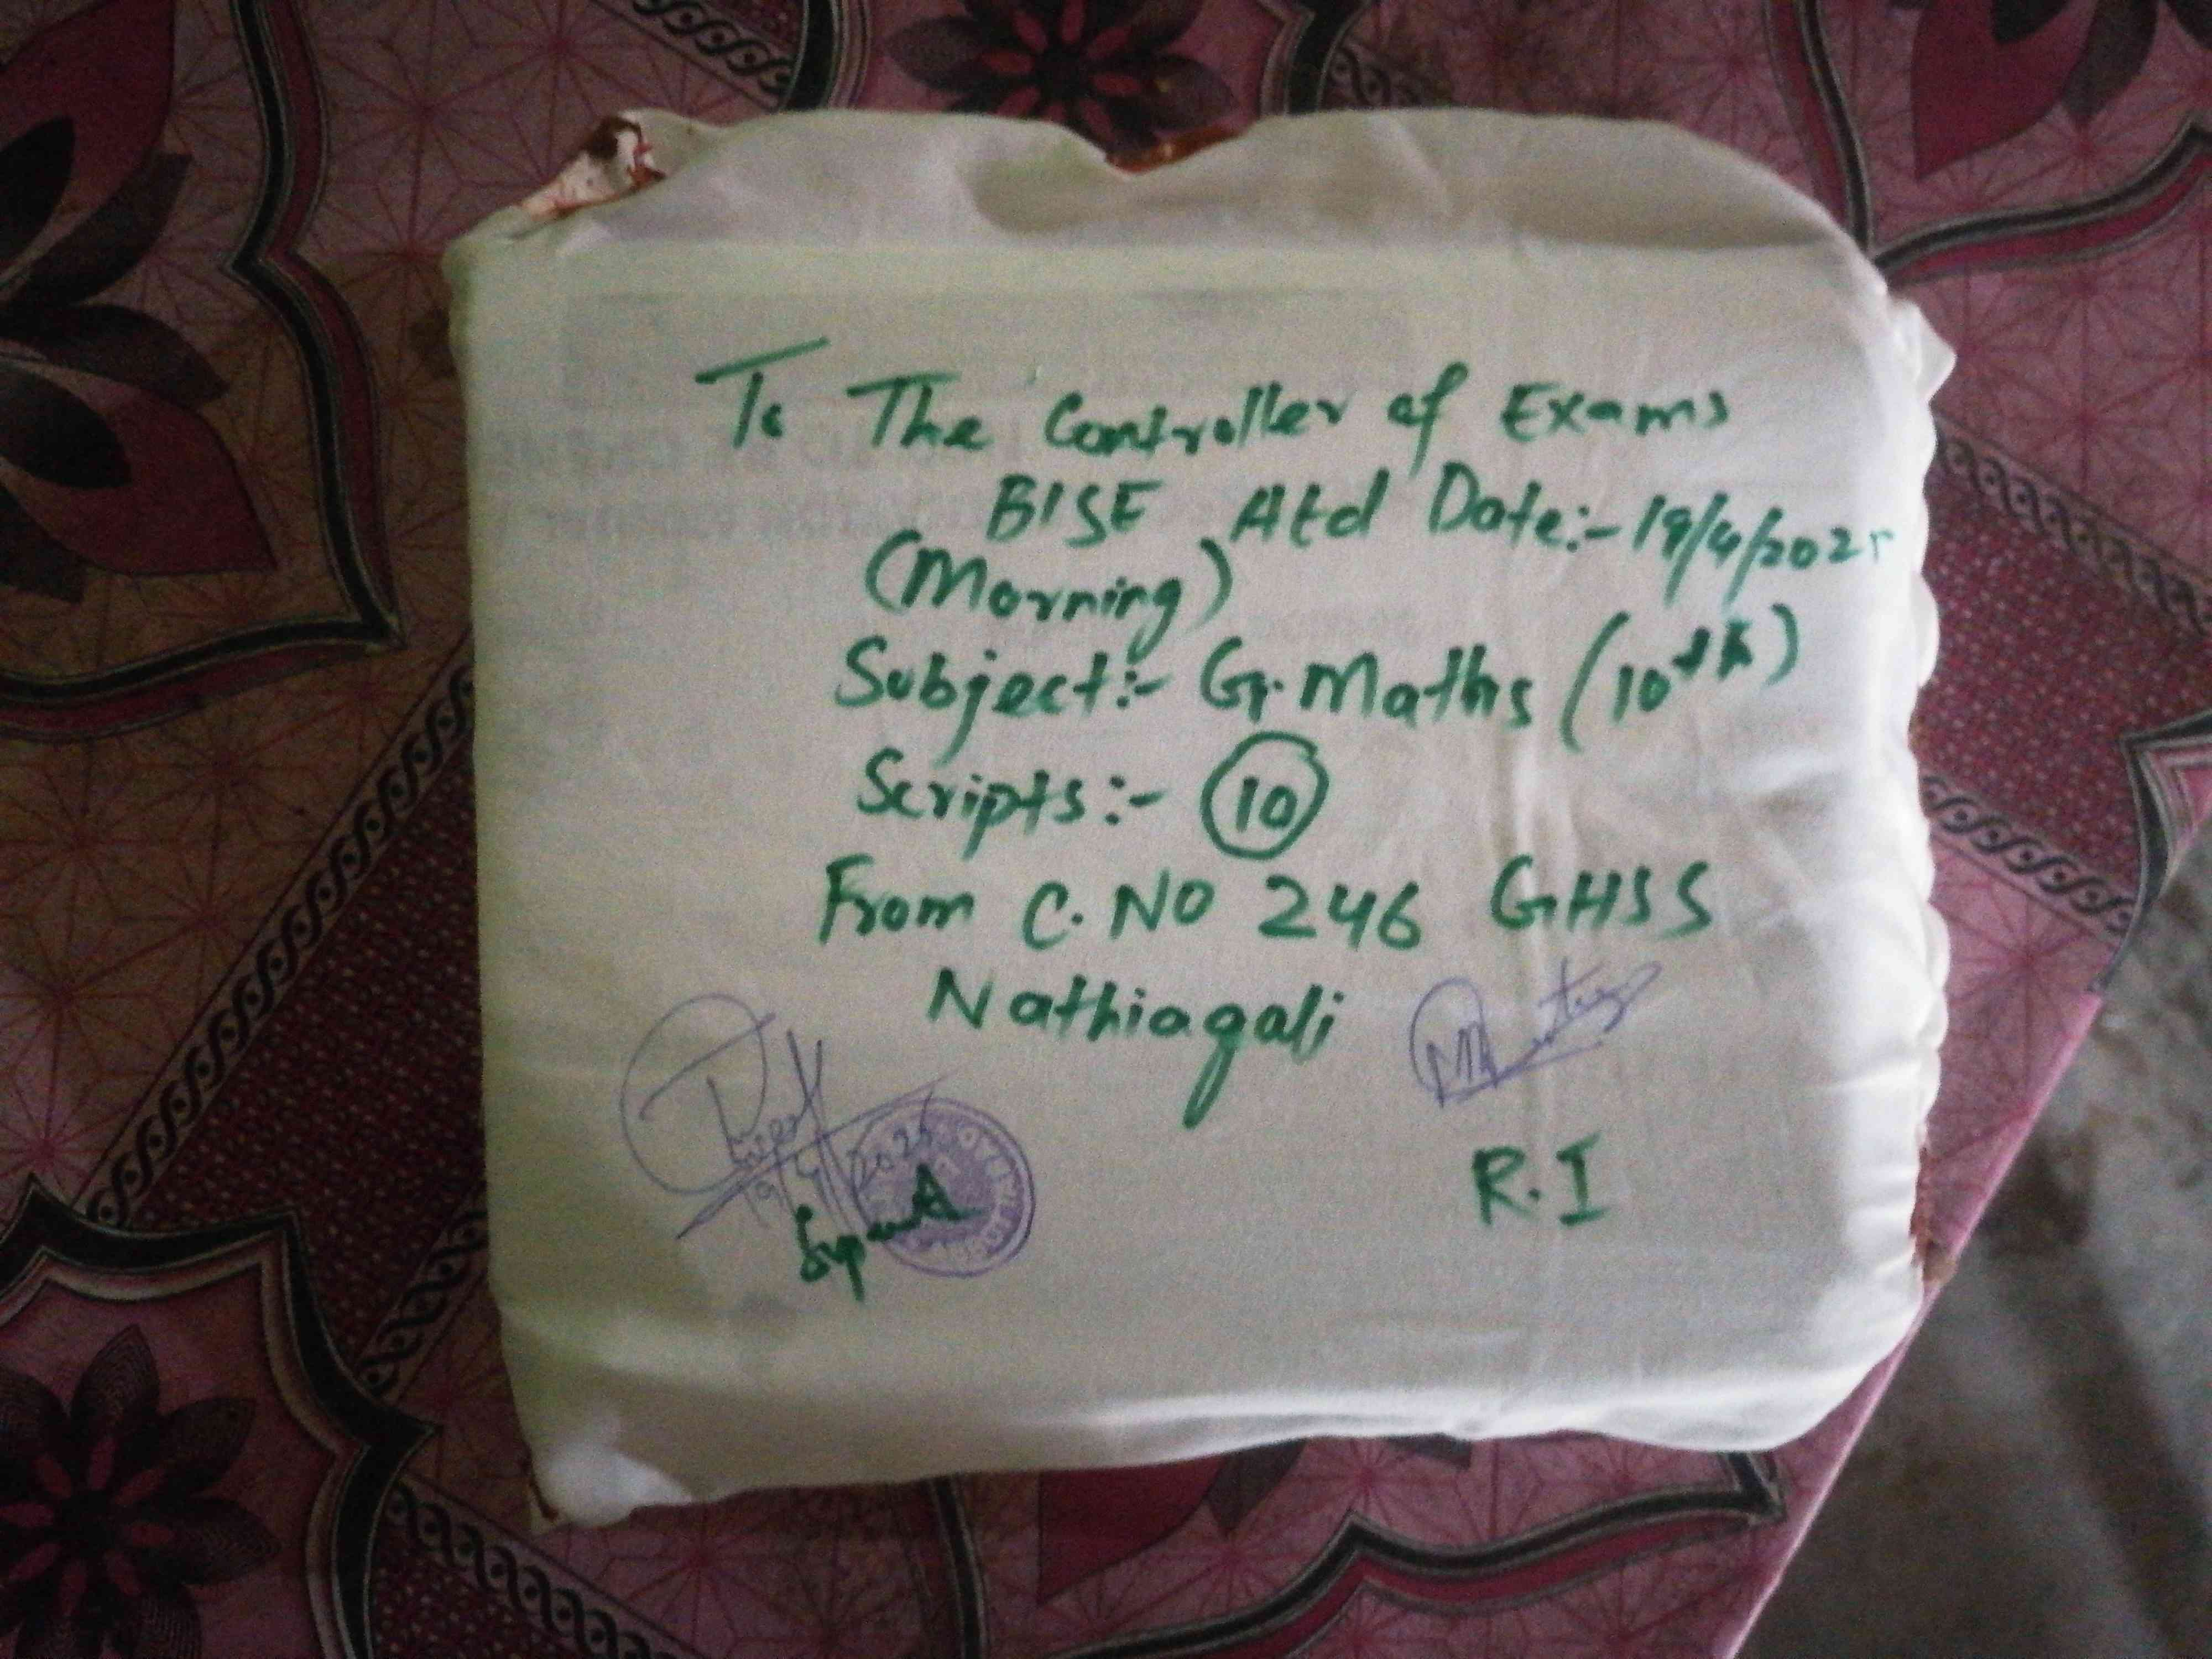 To The Controller of Exams
BISE Atd Date:- 19/4/2025
(Morning)
Subject:- G.Maths (10th)
Scripts:- 10
From C.NO 246 GHSS
Nathiagali
19/4/2025
R.I